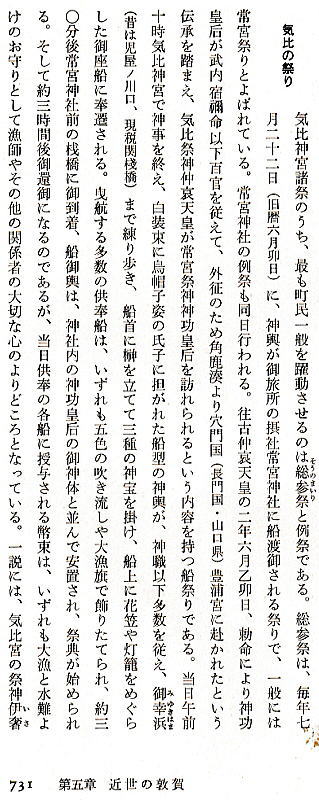 気比の祭り
気比神宮諸祭のうち、最も町民一般を躍動させるのは総参祭と例祭である。総参祭は、毎年七
そうのまいり
月二十二日（旧暦六月卯日）に、神輿が御旅所の摂社常宮神社に船渡御される祭りで、一般には
常宮祭りとよばれている。常宮神社の例祭も同日行われる。往古仲哀天皇の二年六月乙卯日、勅命により神功
皇后が武内宿禰命以下百官を従えて、外征のため角鹿湊より穴門国（長門国・山口県）豊浦宮に赴かれたという
伝承を踏まえ、気比祭神仲哀天皇が常宮祭神神功皇后を訪れられるという内容を持つ船祭りである。当日午前
十時気比神宮で神事を終え、白装束に烏帽子姿の氏子に担がれた船型の神輿が、神職以下多数を従え、御幸浜
みゆきはま
（昔は児屋ノ川口、現税関桟橋）まで練り歩き、船首に榊を立てて三種の神宝を掛け、船上に花笠や灯籠をめぐら
した御座船に奉遷される。曳航する多数の供奉船は、いずれも五色の吹き流しや大漁旗で飾りたてられ、約三
〇分後常宮神社前の桟橋に御到着、船御輿は、神社内の神功皇后の御神体と並んで安置され、祭典が始められ
る。そして約三時間後御還御になるのであるが、当日供奉の各船に授与される幣束は、いずれも大漁と水難よ
けのお守りとして漁師やその他の関係者の大切な心のよりどころとなっている。一説には、気比宮の祭神伊奢
いさ
731 第五章 近世の敦賀